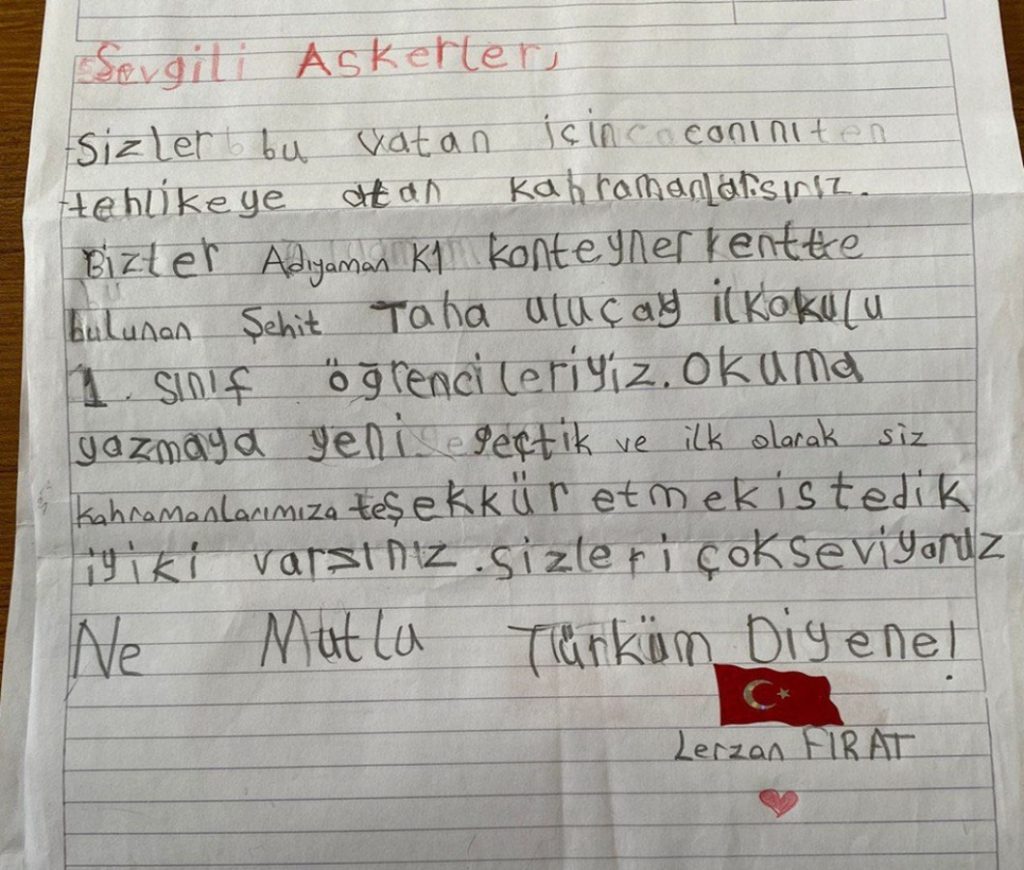 Sevgili Askerler,
Sizler bu vatan için canını
tehlikeye atan kahramanlarsınız.
Bizler Adıyaman K1 konteyner kentte
bulunan Şehit Taha uluçay ilkokulu
1. sınıf öğrencileriyiz. Okuma
yazmaya yeni geçtik ve ilk olarak siz
kahramanlarımıza teşekkür etmek istedik
iyiki varsınız. sizleri çok seviyoruz
Ne Mutlu Türküm Diyene!
Lerzan FIRAT